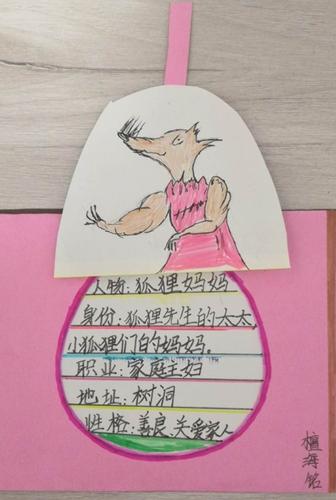 人物：狐狸妈妈
身份：狐狸先生的太太，
小狐狸们的妈妈。
职业：家庭主妇
地址：树洞
性格：善良、关爱家人
檀海铭